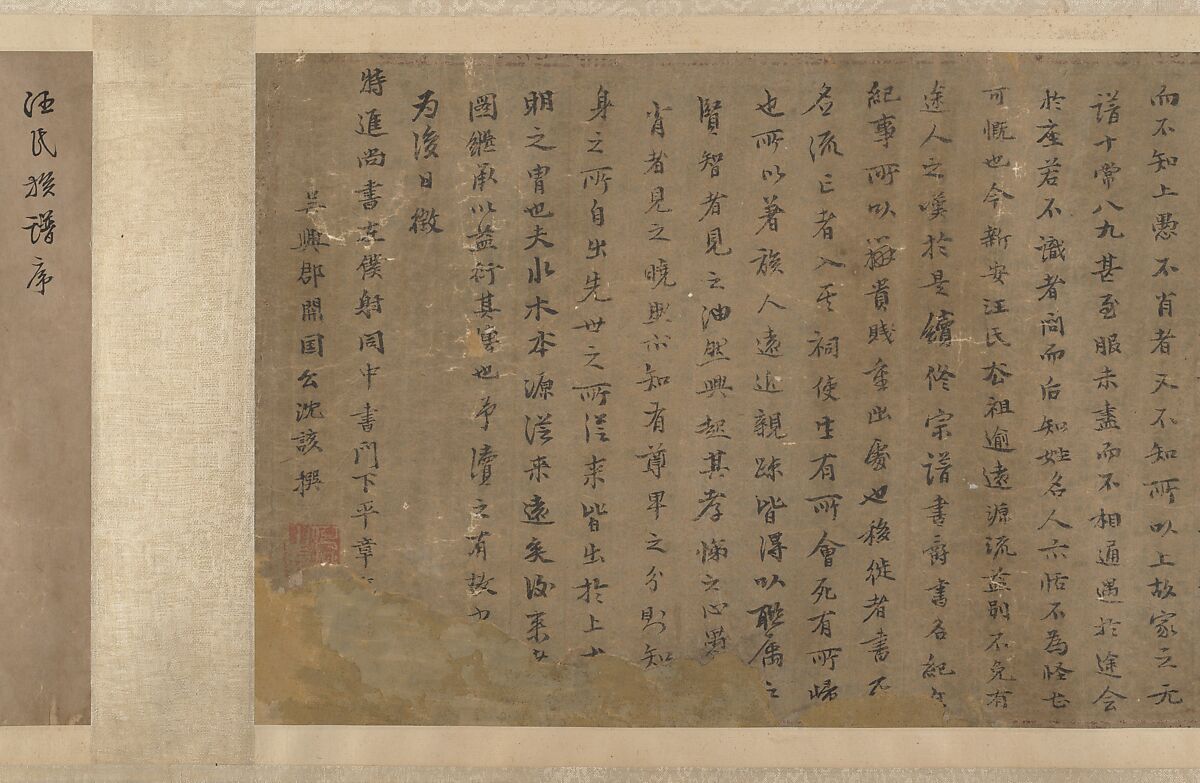 而不知上愚不肖者又不知所以上故家之无
谱十常八九甚至服未盡而不相通遇於途会
於座若不識者問而后知姓名人亦恬不為怪
可慨也今新安汪氏厺祖逾遠源流益別不免有
途人之嘆於是續修宗譜書爵書名紀
紀事所以辨貴賤重出處也移徙者書不
名流亡者入其祠使生有所會死有所歸
也所以著族人遠近親踈皆得以聯属之
賢智者見之油然興起其孝悌之心愚
肖者見之曉然亦知有尊卑之分則知
身之所自出先世之所從来皆出於上
明之胄也夫水木本源從来遠矣後来
圖繼承以益衍其會也予讀之有
為後日徵
特進尚書左僕射同中書門下平章
吳興郡開国公沈該撰
汪氏族谱序